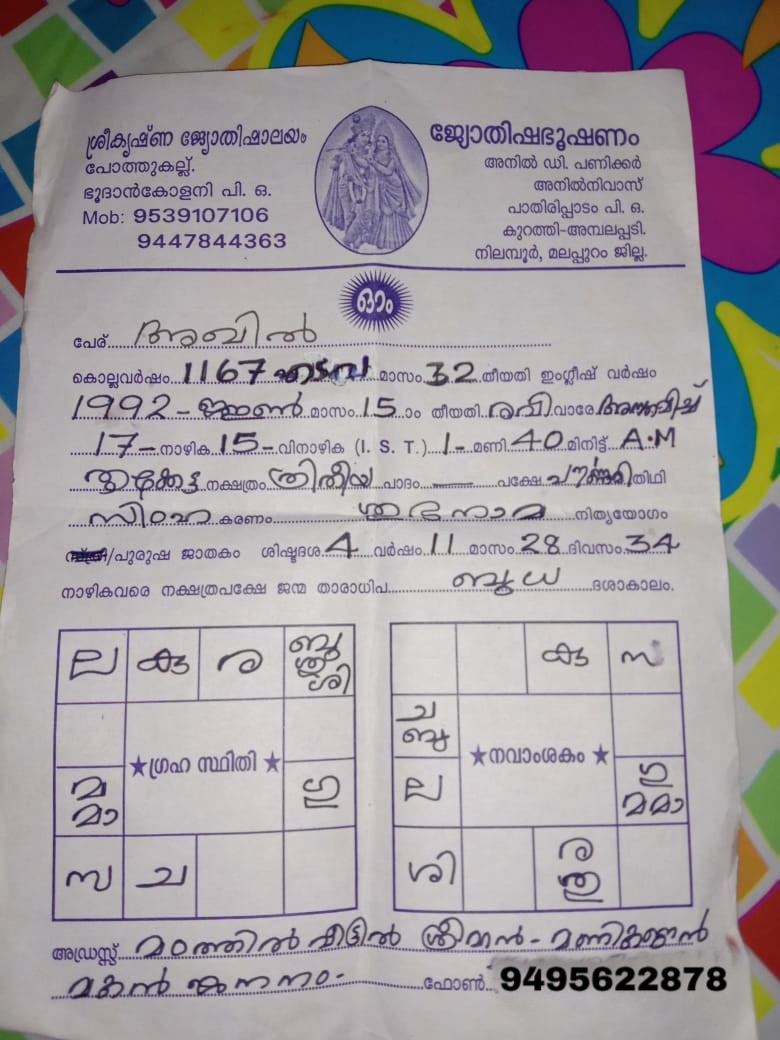 ശ്രീകൃഷ്ണ ജ്യോതിഷാലയം
പോത്തുകല്ല്.
ഭൂദാൻകോളനി പി. ഒ.
Mob: 9539107106
9447844363
ജ്യോതിഷഭൂഷണം
അനിൽ ഡി. പണിക്കർ
അനിൽനിവാസ്
പാതിരിപ്പാടം പി. ഒ.
കുറത്തി-അമ്പലപ്പടി.
നിലമ്പൂർ, മലപ്പുറം ജില്ല.
ഓം
പേര് അഖിൽ
കൊല്ലവർഷം 1167 എടവ മാസം 32 തീയതി ഇംഗ്ലീഷ് വർഷം
1992 - ജൂൺ മാസം 15 ാം തീയതി രവി വാരേ
17 - നാഴിക 15 - വിനാഴിക (I. S. T.) 1 - മണി 40 മിനിട്ട് A.M
തൃക്കേട്ട നക്ഷത്രം ത്രിതീയ പാദം — പക്ഷേ തിഥി
സിംഹ കരണം ശുഭനാമ നിത്യയോഗം
/പുരുഷ ജാതകം ശിഷ്ടദശ 4 വർഷം 11 മാസം 28 ദിവസം 34
നാഴികവരെ നക്ഷത്രപക്ഷേ ജന്മ താരാധിപ ബുധ ദശാകാലം.
ല കു ര ബു ശു ശി
★ഗ്രഹ സ്ഥിതി★
മ മാ ഗു
സ ച
കു സ
ച ബു
★നവാംശകം★
ല ഗു മ മാ
ശി ര ശു
അഡ്രസ്സ് മഠത്തിൽ വീട്ടിൽ ശ്രീമാൻ - മണികണ്ഠൻ
മകൻ ജനനം - ഫോൺ 9495622878